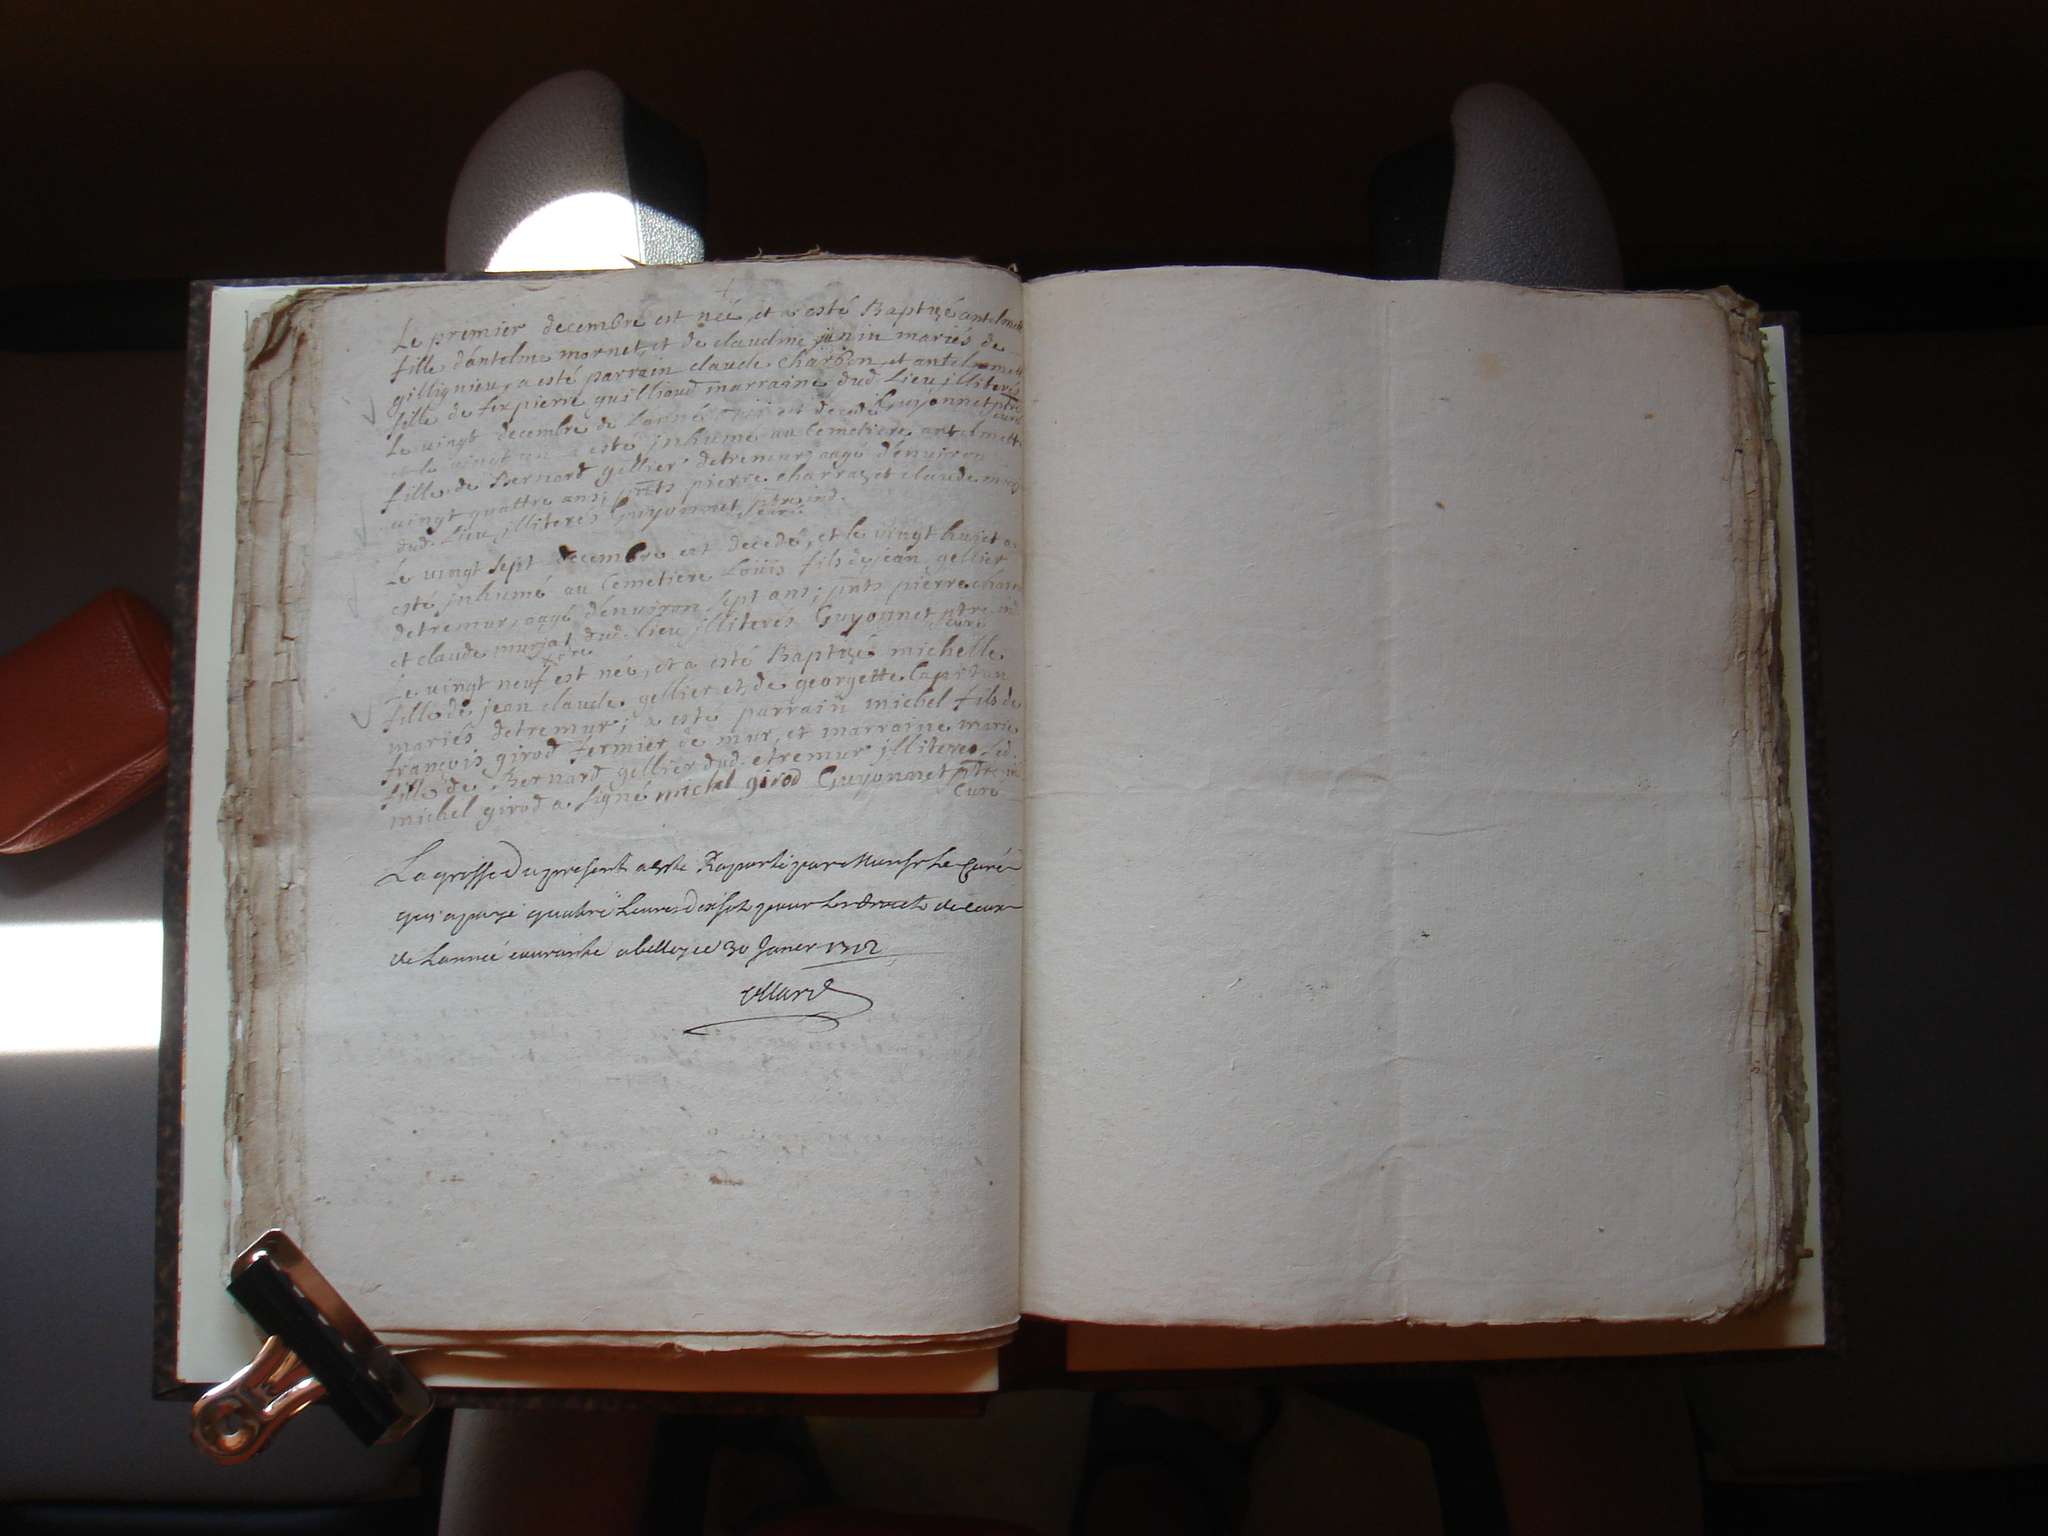 Le premier decembre est neé, et a esté Baptizé antelmette
fille d'antelme mornet, et de claudine janin mariés de
gillignieu, a esté parrain claude charbon, et antelmette
fille de feu pierre guilliaud marraine dud. Lieu illiterés
Guyonnet ptre curé
Le vingt decembre de l'anné est decedé
et le vingt un a esté inhumé au Cemetiere antelmette
fille de Bernard gellier d'etremur, aagé d'environ
vingt quattre ans; pñts pierre charraz, et claude
dud. Lieu illiterés Guyonnet ptre ind. curé
Le vingt sept decembre est decedé, et le vingt huict a
esté inhumé au Cemetiere Loüis fils de jean gellier
detremur, aagé d'environ sept ans; pñts pierre
et claude murjat dud. lieu illiterés Guyonnet ptre ind. curé
Le vingt neuf xbre est neé, et a esté Baptizé michelle
fille de jean claude gellier et de georgette Capitan
mariés detremur; a esté parrain michel fils de
françois girod fermier de mur, et marraine marie
fille de Bernard gellier dud. etremur illiteres Led.
michel girod a signé michel girod Guyonnet ptre
Curé
La grosse du present a este Raporté par Monsr Le Curé
qui a payé quatre livres dix sols pour les droits de
de L'année courante a belley ce 30 Janer 1712